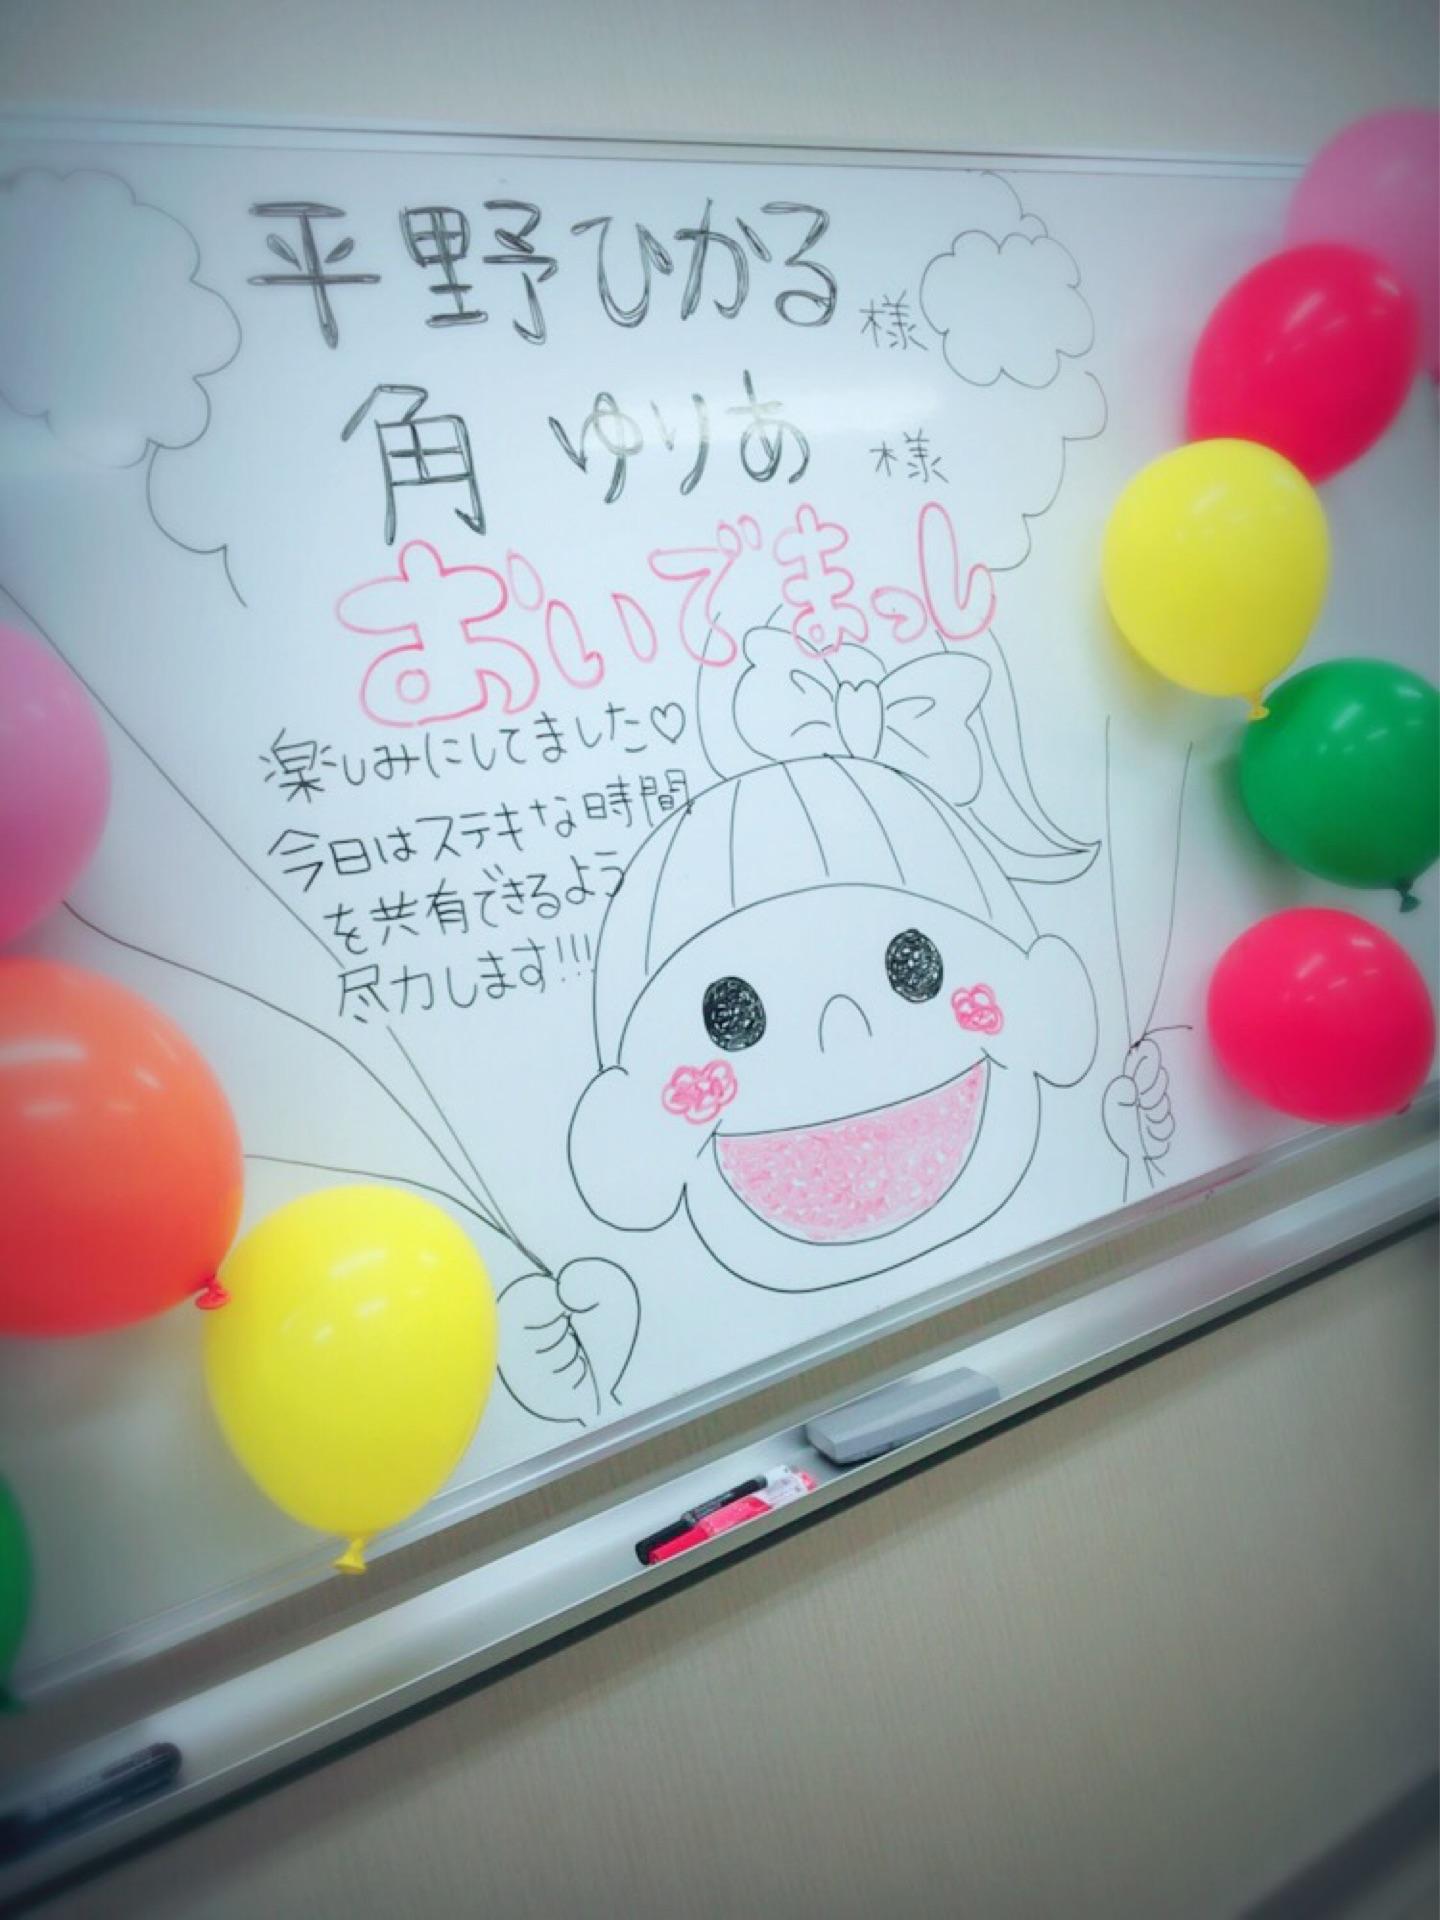 平野ひかる様
角 ゆりあ 様
おいでまっし
楽しみにしてました♡
今日はステキな時間
を共有できるよう
尽力します!!!